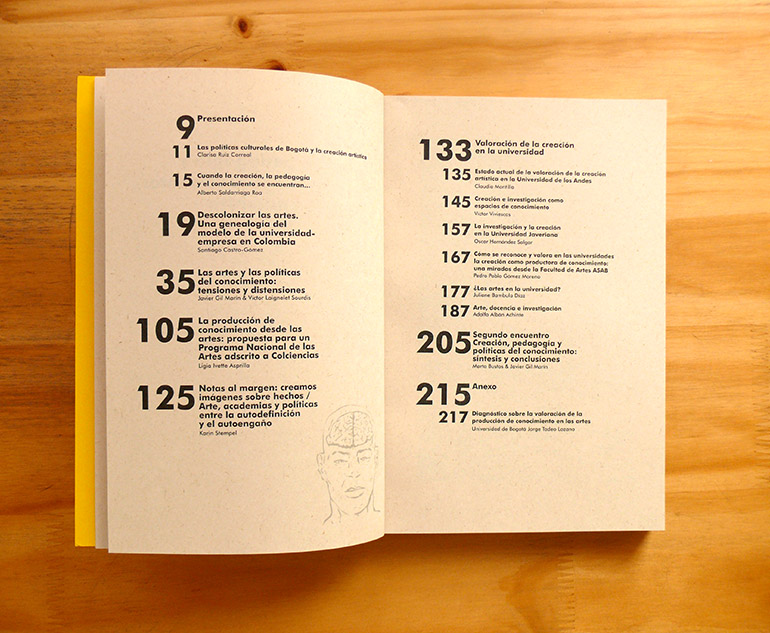 9 Presentación
11 Las políticas culturales de Bogotá y la creación artística
Clarisa Ruiz Correal
15 Cuando la creación, la pedagogía
y el conocimiento se encuentran...
Alberto Saldarriaga Roa
19 Descolonizar las artes.
Una genealogía del
modelo de la universidad-
empresa en Colombia
Santiago Castro-Gómez
35 Las artes y las políticas
del conocimiento:
tensiones y distensiones
Javier Gil Marín & Victor Laignelet Sourdis
105 La producción de
conocimiento desde las
artes: propuesta para un
Programa Nacional de las
Artes adscrito a Colciencias
Ligia Ivette Asprilla
125 Notas al margen: creamos
imágenes sobre hechos /
Arte, academias y políticas
entre la autodefinición
y el autoengaño
Karin Stempel
133 Valoración de la creación
en la universidad
135 Estado actual de la valoración de la creación
artística en la Universidad de los Andes
Claudia Montilla
145 Creación e investigación como
espacios de conocimiento
Víctor Viviescas
157 La investigación y la creación
en la Universidad Javeriana
Oscar Hernández Salgar
167 Cómo se reconoce y valora en las universidades
la creación como productora de conocimiento:
una miradas desde la Facultad de Artes ASAB
Pedro Pablo Gómez Moreno
177 ¿Las artes en la universidad?
Juliane Bambula Diaz
187 Arte, docencia e investigación
Adolfo Albán Achinte
205 Segundo encuentro
Creación, pedagogía y
políticas del conocimiento:
síntesis y conclusiones
Marta Bustos & Javier Gil Marín
215 Anexo
217 Diagnóstico sobre la valoración de la
producción de conocimiento en las artes
Universidad de Bogotá Jorge Tadeo Lozano